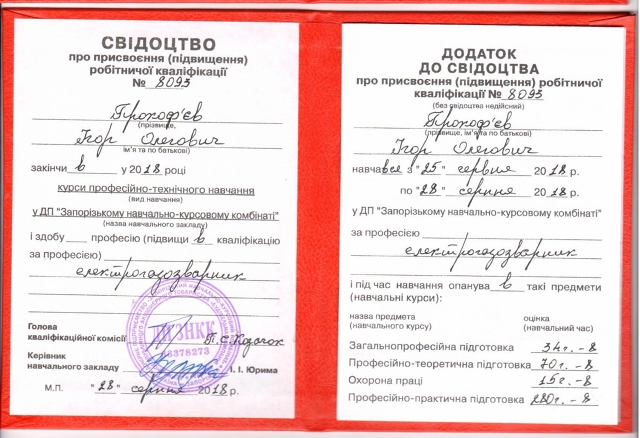 СВІДОЦТВО
про присвоєння (підвищення)
робітничої кваліфікації
№ 8093
Прокоф'єв
(прізвище,
Ігор Олегович
ім'я та по батькові)
закінчи в у 2018 році
курси професійно-технічного навчання
(вид навчання)
у ДП "Запорізькому навчально-курсовому комбінаті"
(назва навчального закладу)
і здобу професію (підвищи в кваліфікацію
за професією)
електрогазозварник
Голова
кваліфікаційної комісії П.С.Ходачок
Керівник
навчального закладу І. І. Юрима
М.П. "28" серпня 2018р.
ЗНКК
38378273
ДОДАТОК
ДО СВІДОЦТВА
про присвоєння (підвищення) робітничої
кваліфікації № 8093
(без свідоцтва недійсний)
Прокоф'єв
(прізвище, ім'я та по батькові)
Ігор Олегович
навчався з "25" червня 2018р.
по "28" серпня 2018р.
у ДП "Запорізькому навчально-курсовому комбінаті"
за професією
електрогазозварник
і під час навчання опанува в такі предмети
(навчальні курси):
назва предмета оцінка
(навчального курсу) (навчальний час)
Загальнопрофесійна підготовка 34г. -8
Професійно-теоретична підготовка 70г. -8
Охорона праці 15г. -8
Професійно-практична підготовка 280г. -8